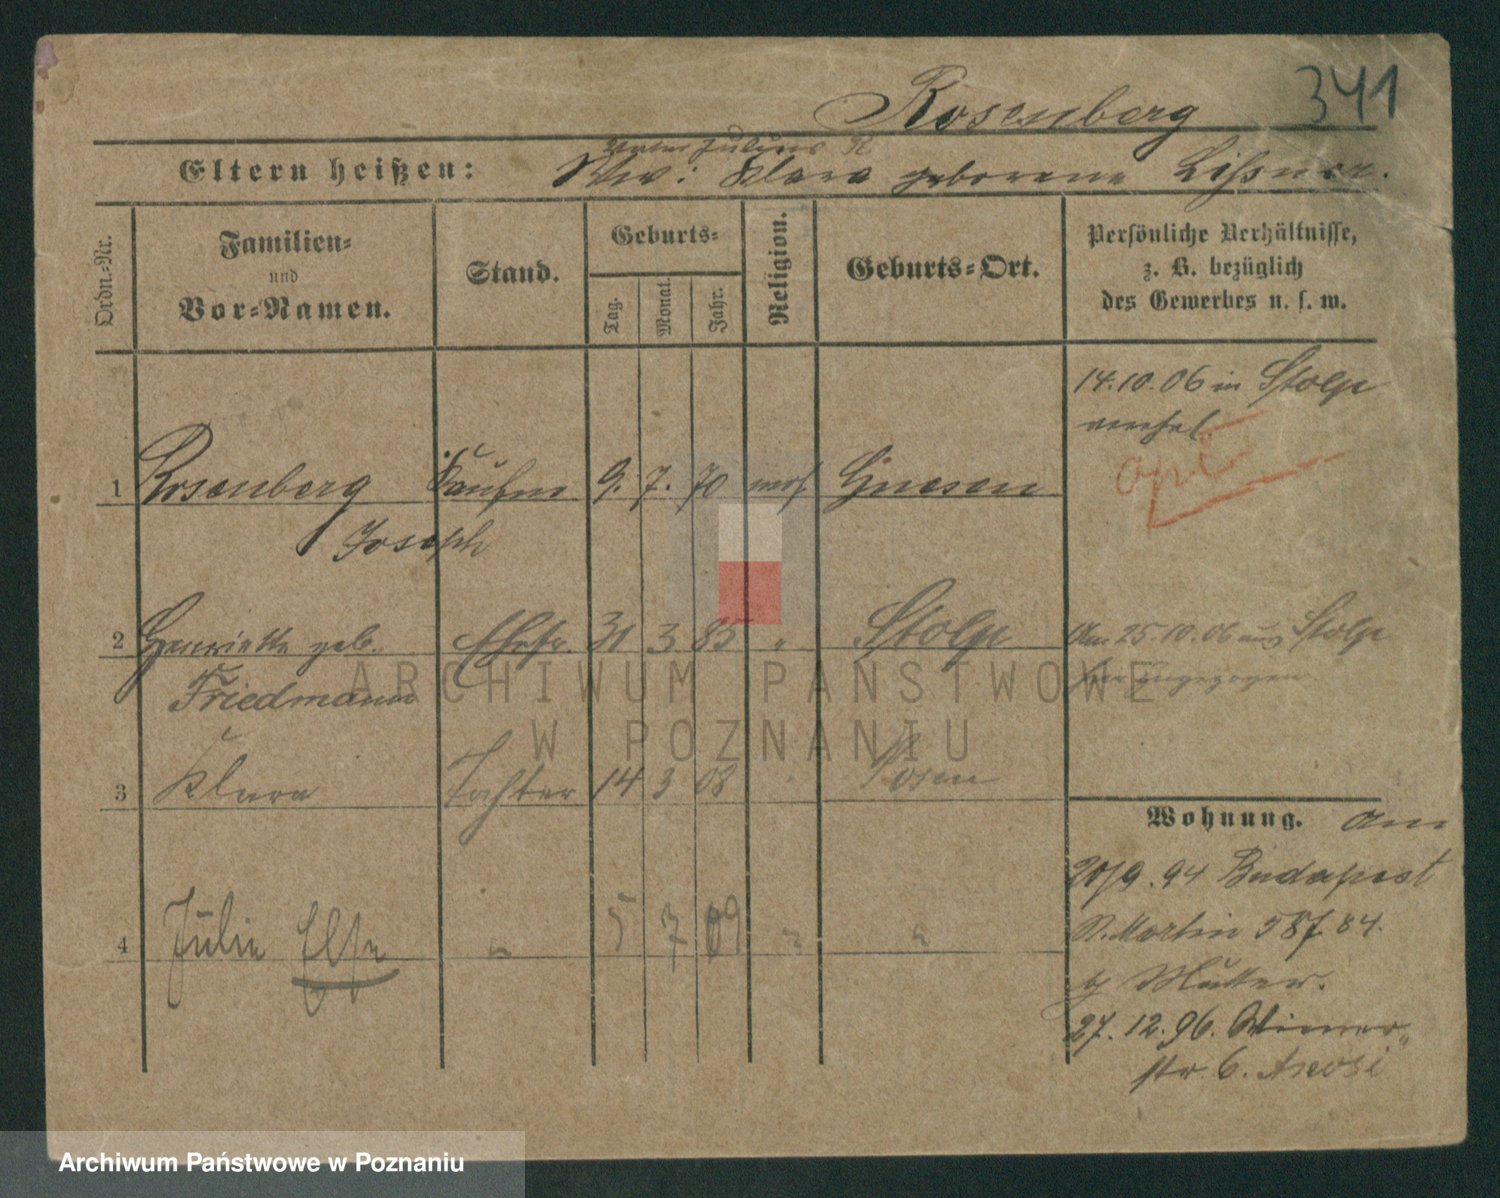 Rosenberg 341
Vater Julius R
Eltern heißen: Ww: Klara geborene Lißner.
Ordn.-Nr.
Familien-
und
Vor-Namen.
Stand.
Geburts-
Tag.
Monat.
Jahr.
Religion.
Geburts-Ort.
Persönliche Verhältnisse,
z. B. bezüglich
des Gewerbes u. s. w.
14.10.06 in Stolp
verehel.
1 Rosenberg Kaufm 9. 7. 70 mos. Gnesen
Joseph
2 Henriette geb. Ehefr. 31 3 85 " Stolp Am 25.10.06 aus Stolp
Friedmann hier zugezogen
3 Klara Tochter 14 3 08 " Posen
Wohnung. am
20/9.94 Budapest
4 Julie Else " 5 7 09 " "
St. Martin 58
b/ Mutter.
27.12.96. Wiener-
str. 6.
ARCHIWUM PAŃSTWOWE
W POZNANIU
Archiwum Państwowe w Poznaniu